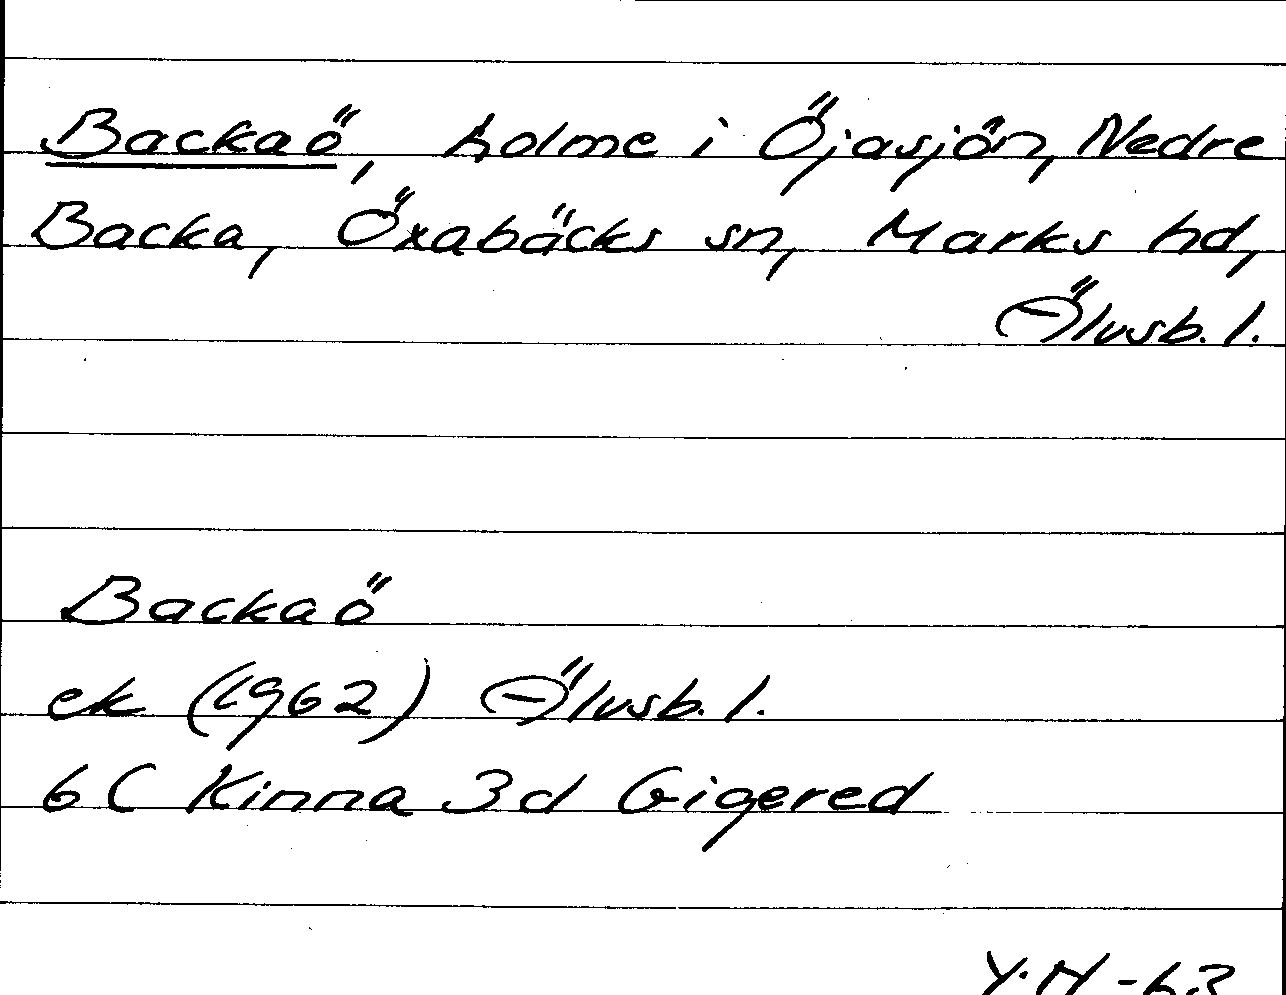 Backaö, holme i Öjasjön, Nedre
Backa, Öxabäcks sn, Marks hd,
Älvsb. l.
Backaö
ek (1962) Älvsb. l.
6C Kinna 3d Gigered
Y.N -63